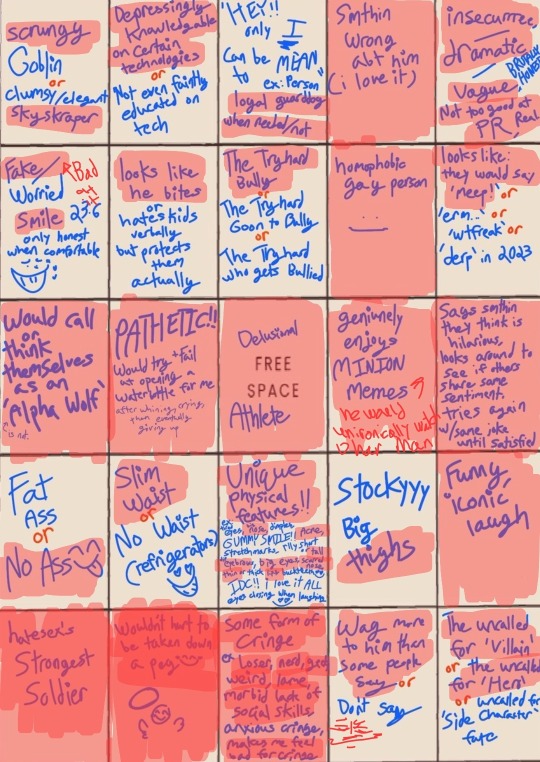 scrungy
Goblin
or
clumsy/elegant
skyskraper
Depressingly
Knowledgable
on Certain
technologies
or
Not even faintly
educated on
tech
"HEY!!
only I
Can be MEAN
to ex: Person"
loyal guarddog
when needed/not
Smthin
wrong
abt him
(i love it)
insecurree,
dramatic
BRUTALLY
HONEST
Vague
Not too good at
PR, Real
Fake/
Worried
Smile
Bad
at it
23.6
only honest
when comfortable
looks like
he bites
or
hates kids
verbally
but protects
them
actually
The Tryhard
Bully
or
The Tryhard
Goon to Bully
or
The Tryhard
who gets Bullied
homophobic
gay person
looks like:
they would say
'meep!' or
'erm..' or
'wtfreak' or
'derp' in 2023
Would call
or
think
themselves
as an
'Alpha Wolf'
is not.
PATHETIC!!
Would try + fail
at opening a
waterbottle for me
after whining, crying,
than eventually
giving up
Delusional
FREE
SPACE
Athlete
geniunely
enjoys
MINION
Memes
he would
unironically watch
Says smthin
they think is
hilarious,
looks around to
see if others
share same
sentiment.
tries again
w/same joke
until satisfied
Fat
Ass
or
No Ass
Slim
Waist
or
No Waist
(refrigerators)
Unique
physical
features!!
ex:
Eyes, nose, dimples,
GUMMY SMILE!! Acne,
stretchmarks, r'lly short
or tall
eyebrows, big eyes, scarred
nose,
thin or thick lips, bucktooth
IDC!! i love it ALL
eyes closing when laughing
Stockyyy
Big
thighs
Funny,
iconic
laugh
hatesex's
Strongest
Soldier
Wouldn't hurt to
be taken down
a peg
some form of
Cringe
ex
Loser, nerd, geek
weird, lame,
morbid lack of
social skills,
anxious cringe,
makes me feel
bad for cringe
Way more
to him than
some people
say or
Don't say
The uncalled
for 'Villain'
or the uncalled
for 'Hero'
or uncalled for
'Side Character'
fate